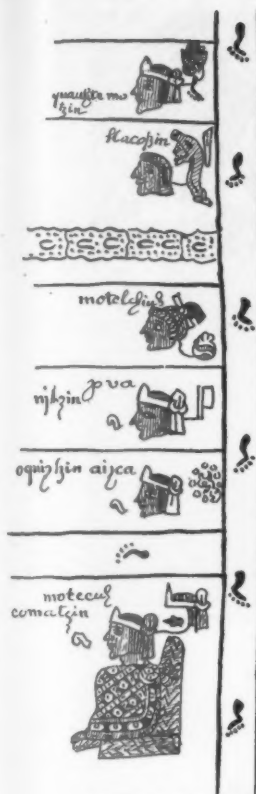 quauhte mo
tzin
tlacotzin
motelchiuh
pva
nitzin
oquiztzin aizca
motecuh
comatzin